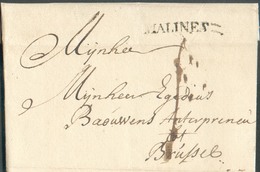 MALINES
Mijnheer
Mijnheer Egedius
Baouwens Anterpreneu
tot
Brussel